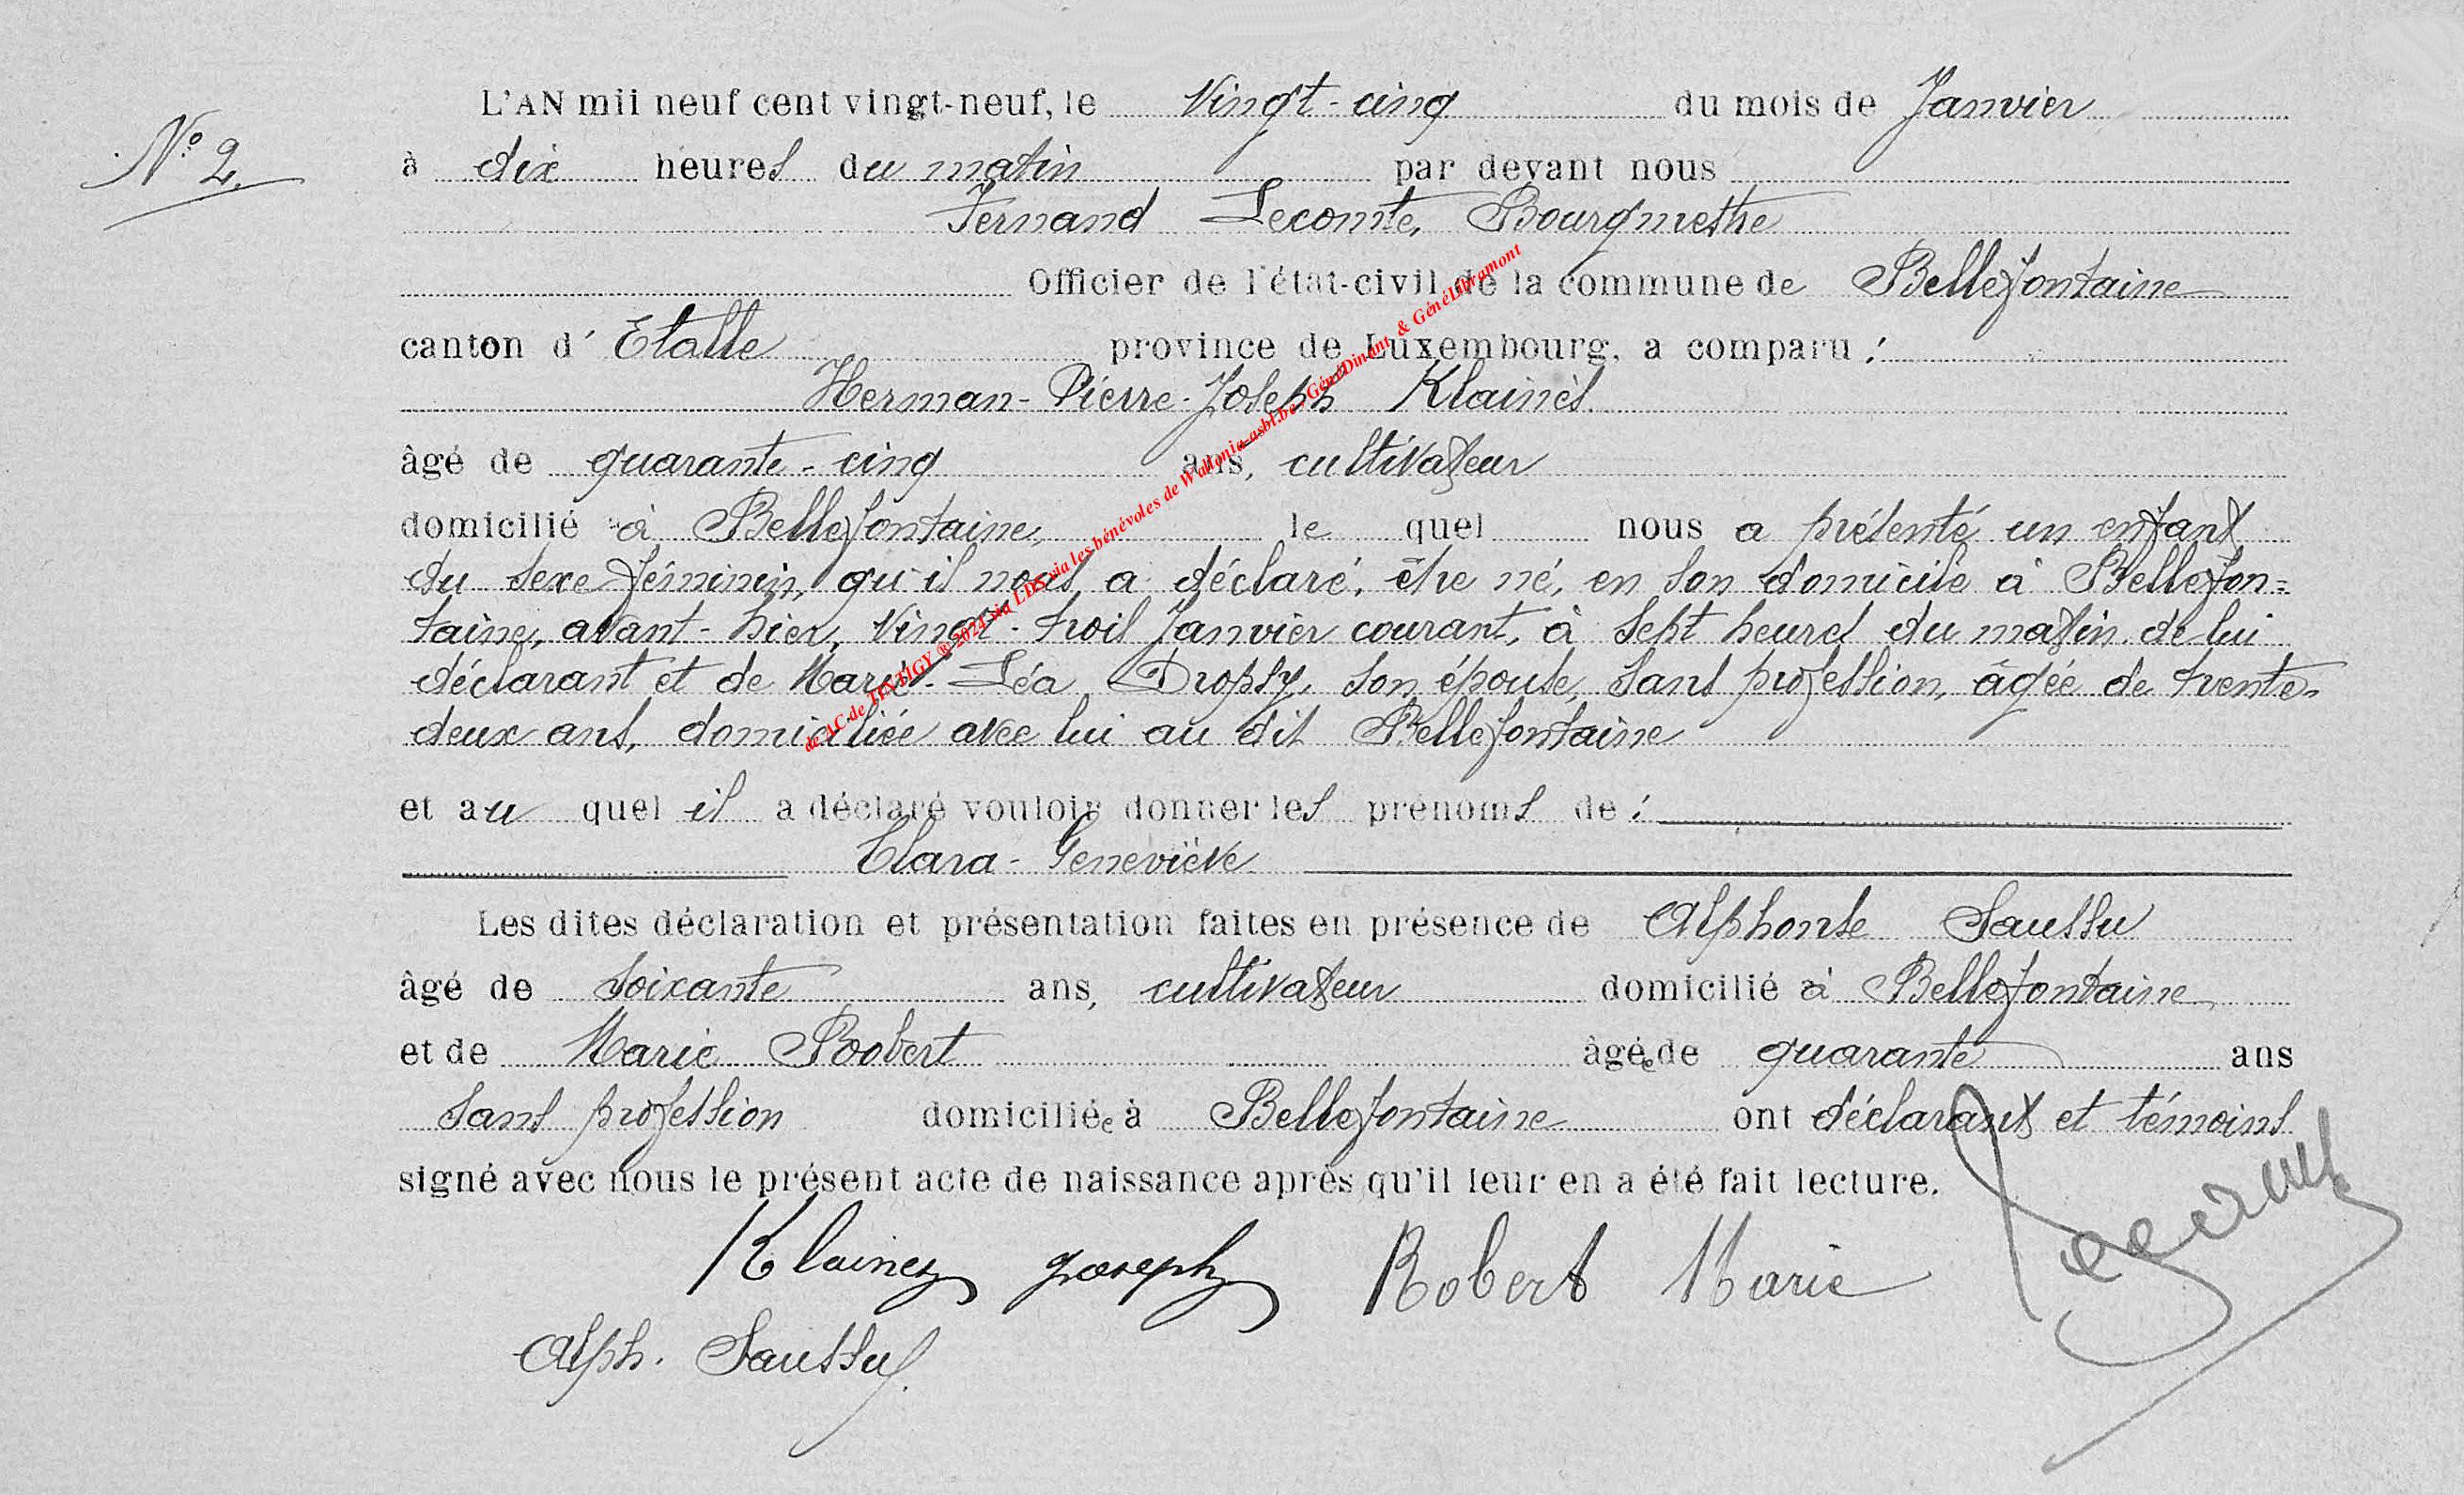 N° 2.
L'AN mil neuf cent vingt-neuf, le Vingt-cinq du mois de Janvier
à dix heures du matin par devant nous
Fernand Lecomte, Bourgmestre
Officier de l'état-civil de la commune de Bellefontaine
canton d' Etalle province de Luxembourg, a comparu :
Herman-Pierre-Joseph Klainés
âgé de quarante-cinq ans, cultivateur
domicilié à Bellefontaine, le quel nous a présenté un enfant
du sexe féminin, qu'il nous a déclaré, être né, en son domicile à Bellefon=
taine, avant-hier, Vingt-trois Janvier courant, à sept heures du matin, de lui
déclarant et de Marie-Léa Dropsy, son épouse, sans profession, âgée de trente-
deux ans, domiciliée avec lui au dit Bellefontaine
et au quel il a déclaré vouloir donner les prénoms de :
Clara-Geneviève
Les dites déclaration et présentation faites en présence de Alphonse Saussu
âgé de soixante ans, cultivateur domicilié à Bellefontaine
et de Marie Robert âgée de quarante ans
sans profession domiciliée à Bellefontaine ont déclarant et témoins
signé avec nous le présent acte de naissance après qu'il leur en a été fait lecture.
Klainez Joseph Robert Marie
Alph. Saussu.
de AC de TINTIGY ® 2024 via LDS via les bénévoles de Wallonia-asbl.be, GénéDinant & GénéLibramont